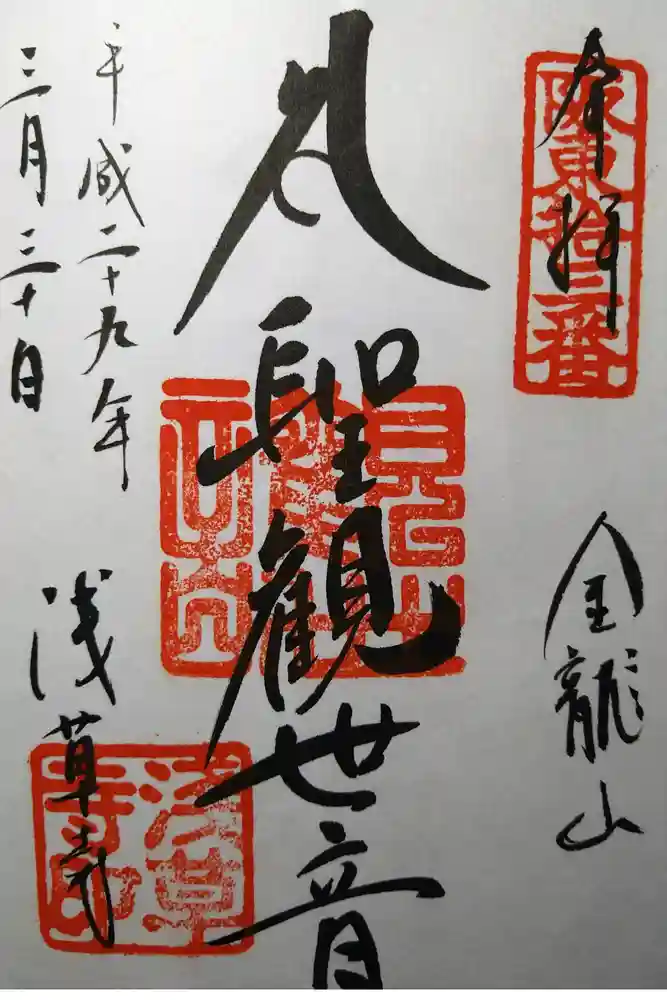 奉拝
阪東拾三番
金龍山
聖観世音
浅草寺
平成二十九年
三月三十日
浅草寺印